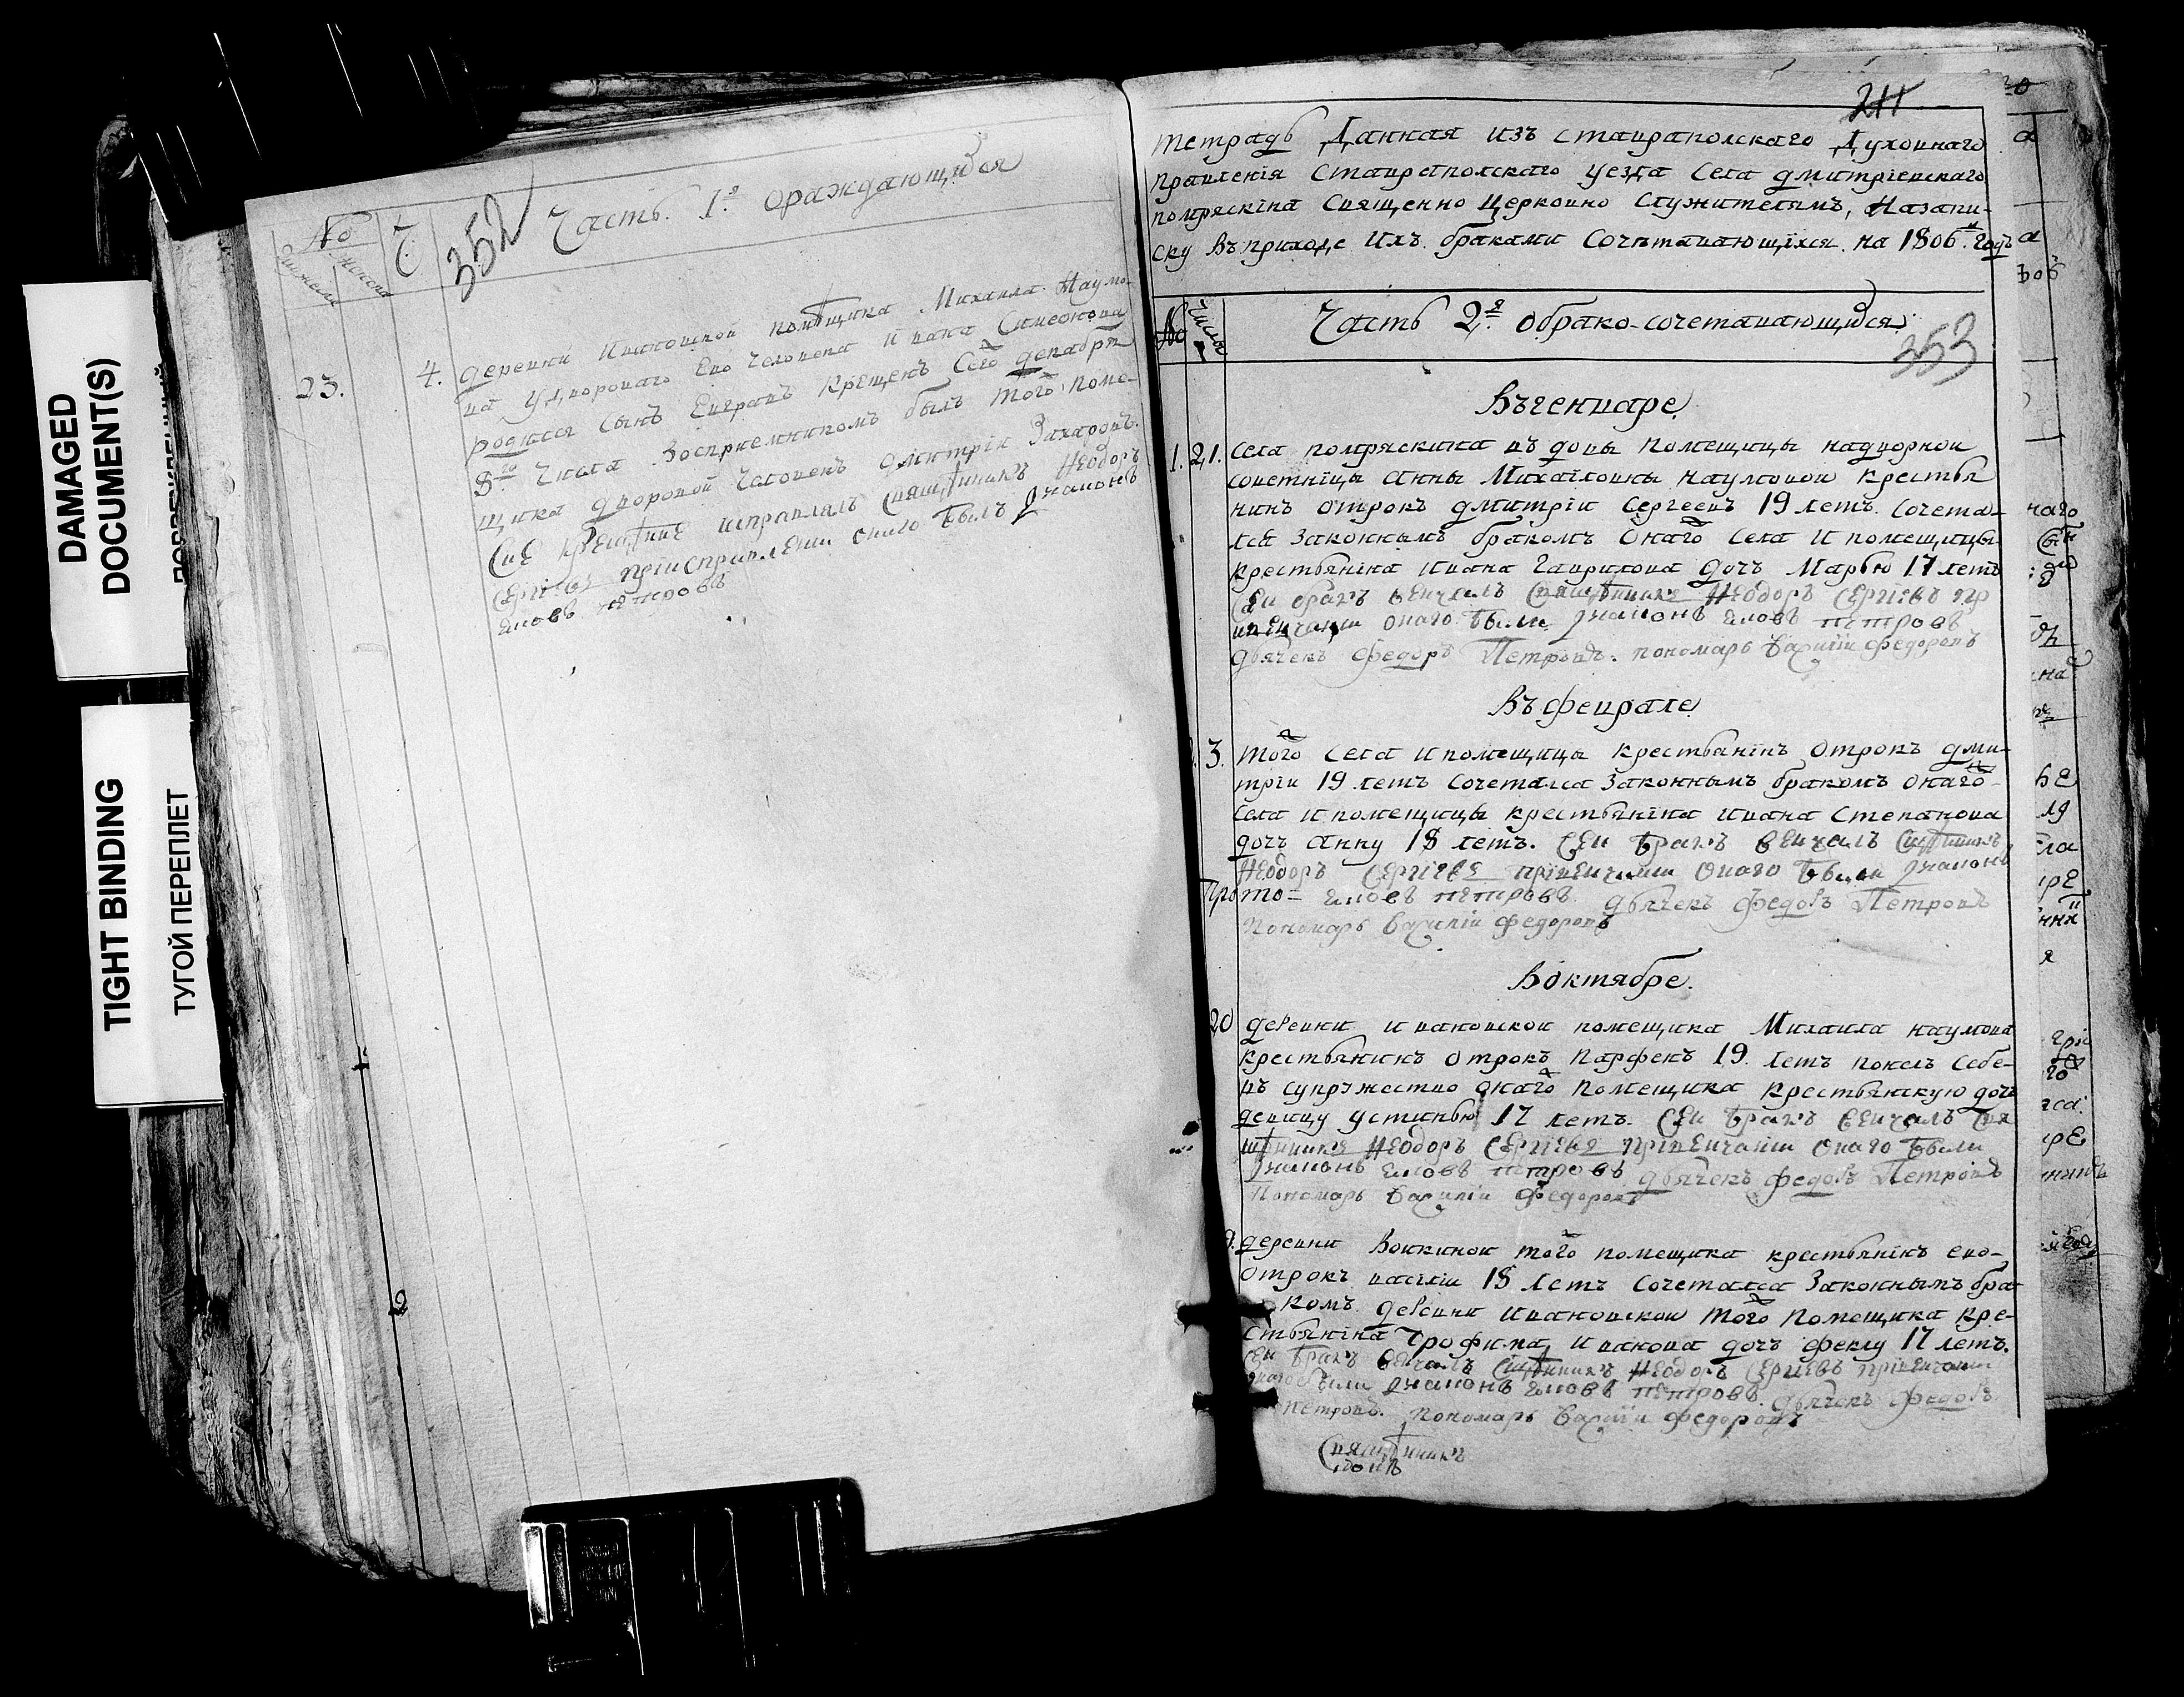 DAMAGED
DOCUMENT(S)
TIGHT BINDING
ТУГОЙ ПЕРЕПЛЕТ
№
Ч.
352
Часть 1я ораждающихся
23.
4. деревни Ивановской помѣщика Михаила Наумо-
ва удворонаго Ево человека Ивана Симеонова
родился сынъ Евграфъ крещенъ Сего декабря
8го числа Восприемникомъ былъ того поме-
щика дворовой человекъ дмитрiи Захаровъ.
Сие крещение исправлялъ Священникъ Ѳеодоръ
Сергiевъ приисправлении онаго былъ Диаконъ
Иаковъ петровъ
211
Тетрадь Данная изъ Ставраполскаго Духовнаго
правленiя Ставрополскаго уезда Села дмитрiевскаго
помряскина Священно Церковно Служителямъ, Назапи-
ску Въ приходе ихъ браками Сочетавающихся на 1806й годъ
№
Числа
Часть 2я обрако-сочетавающихся
353
Въ генваре
1. 21. Села помряскина въдовы помещицы надворной
советницы Анны Михаиловны Наумовой крестья
нинъ отрокъ дмитрiи Сергеевъ 19 летъ сочета-
лса Законнымъ бракомъ Онаго Села И помещицы
крестьянина Ивана Гаврилова дочь Марью 17 летъ
Сеи бракъ венчалъ Священникъ Ѳеодоръ Сергiевъ пр
ивенчании онаго были Диаконъ Иаковъ петровъ
дьячекъ Федоръ Петровъ. пономарь Василiи Федоровъ
Въ феврале
3. Того Села и помещицы крестьянинъ Отрокъ дми-
трiи 19 летъ Сочеталса Законнымъ бракомъ онаго
Села И помещицы крестьянина Ивана Степанова
дочь Анну 18 летъ. Сеи бракъ венчалъ Священникъ
Ѳеодоръ Сергiевъ привенчании Онаго были Диаконъ
Прото- Иаковъ петровъ дьячекъ Федоръ Петровъ
Пономарь Василiи Федоровъ
Воктябре.
20 деревни Ивановской помещика Михаила Наумова
крестьянинъ отрокъ Парфенъ 19. летъ поялъ Себе-
въ супружество онаго помещика крестьянскую дочь
девицу устинью 17 летъ. Сеи бракъ венчалъ Свя
щенникъ Ѳеодоръ Сергiевъ привенчании онаго были
Диаконъ Иаковъ петровъ дьячекъ Федоръ Петровъ
Пономарь Василiи Федоровъ
деревни Воикиной того помещика крестьянинъ ево-
отрокъ василiи 18 летъ сочеталса Законнымъ бра
комъ деревни Ивановской того помещика кре-
стьянина Трофима Иванова дочь феклу 17 летъ.
Сеи бракъ венчалъ Священникъ Ѳеодоръ Сергiевъ привенчании
онаго были Диаконъ Иаковъ петровъ. дьячекъ Федоръ
Петровъ. пономарь Василiи Федоровъ
Священникъ